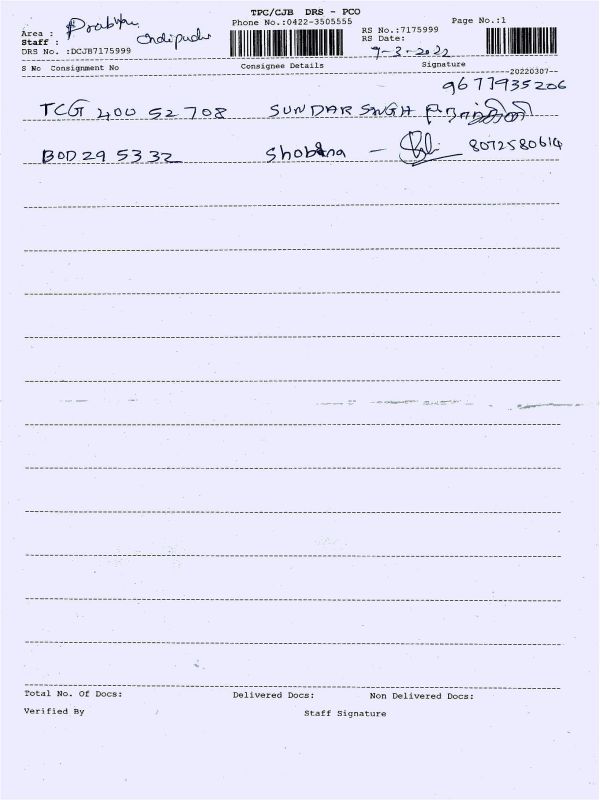 TPC/CJB DRS - PCO
Area : Prabhu
Phone No.:0422-3505555
Page No.:1
Staff :
RS No.:7175999
DRS No. :DCJB7175999
RS Date: 7-3-2022
S No Consignment No Consignee Details Signature
--20220307--
9677935206
TCG 400 52 708 SUNDAR SNGH
BOD 29 5332 Shobana - 8072580614
Total No. Of Docs: Delivered Docs: Non Delivered Docs:
Verified By Staff Signature